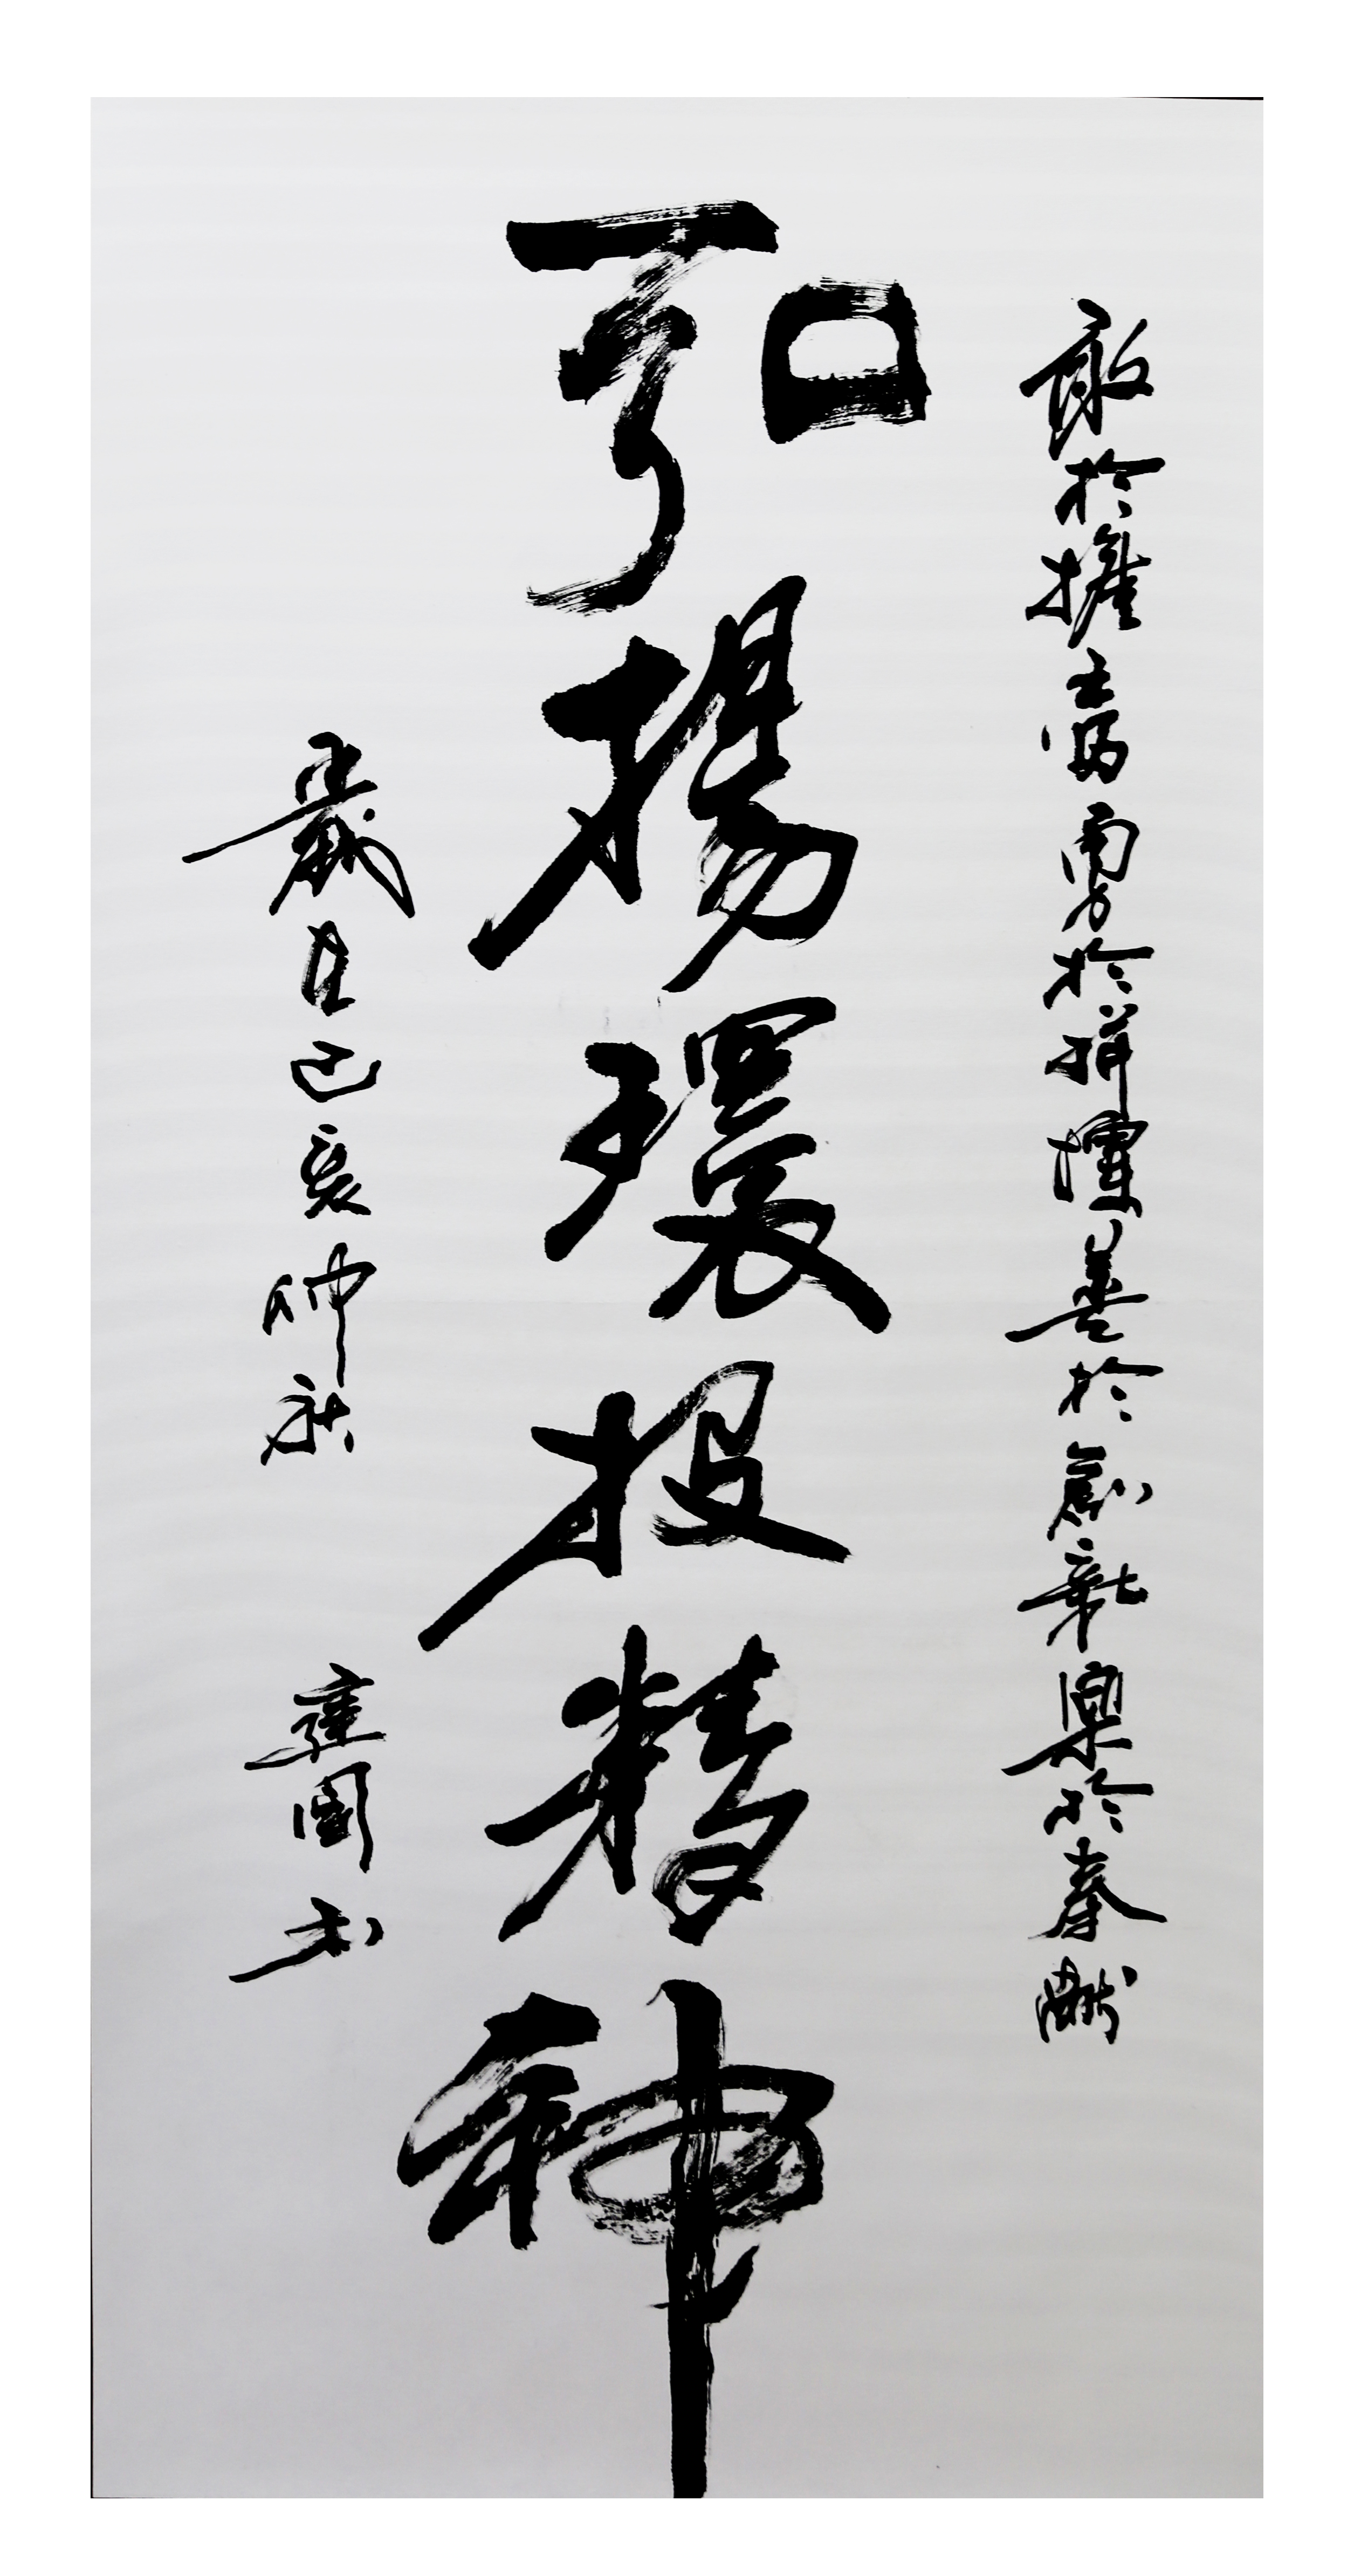 敢於擔當勇於拼搏善於創新樂於奉獻
弘揚環投精神
歲在己亥仲秋 建國書